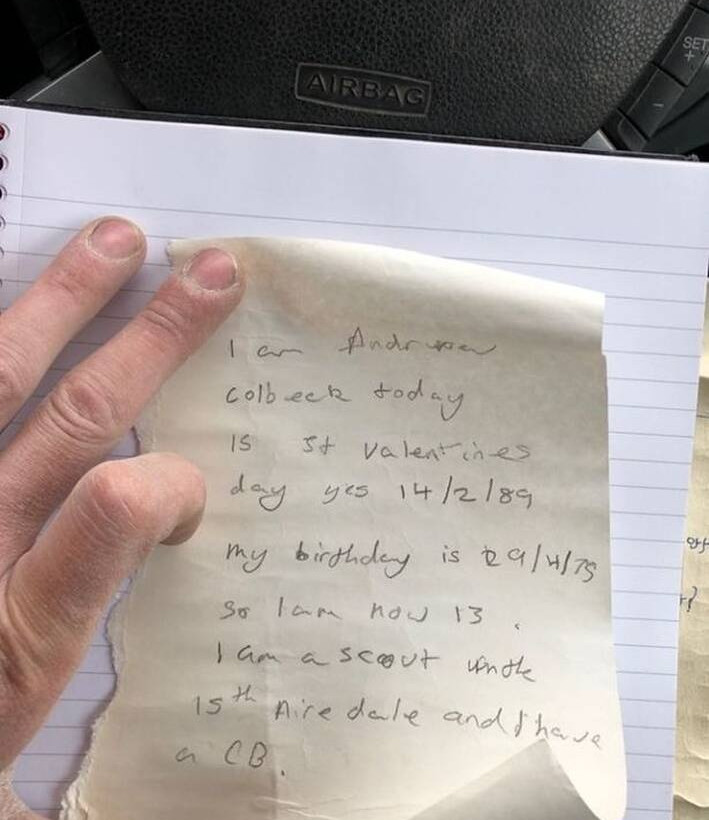 SET
+
-
AIRBAG
I am Andrew
Colbeck today
is st valentines
day yes 14/2/89
my birthday is 29/4/75
so I am now 13.
I am a scout in the
15th Airedale and I have
a CB.
?